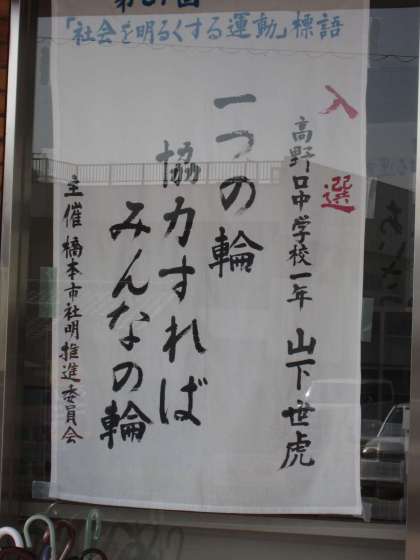 「社会を明るくする運動」標語
入選
高野口中学校一年 山下世虎
一つの輪
協力すれば
みんなの輪
主催 橋本市社明推進委員会